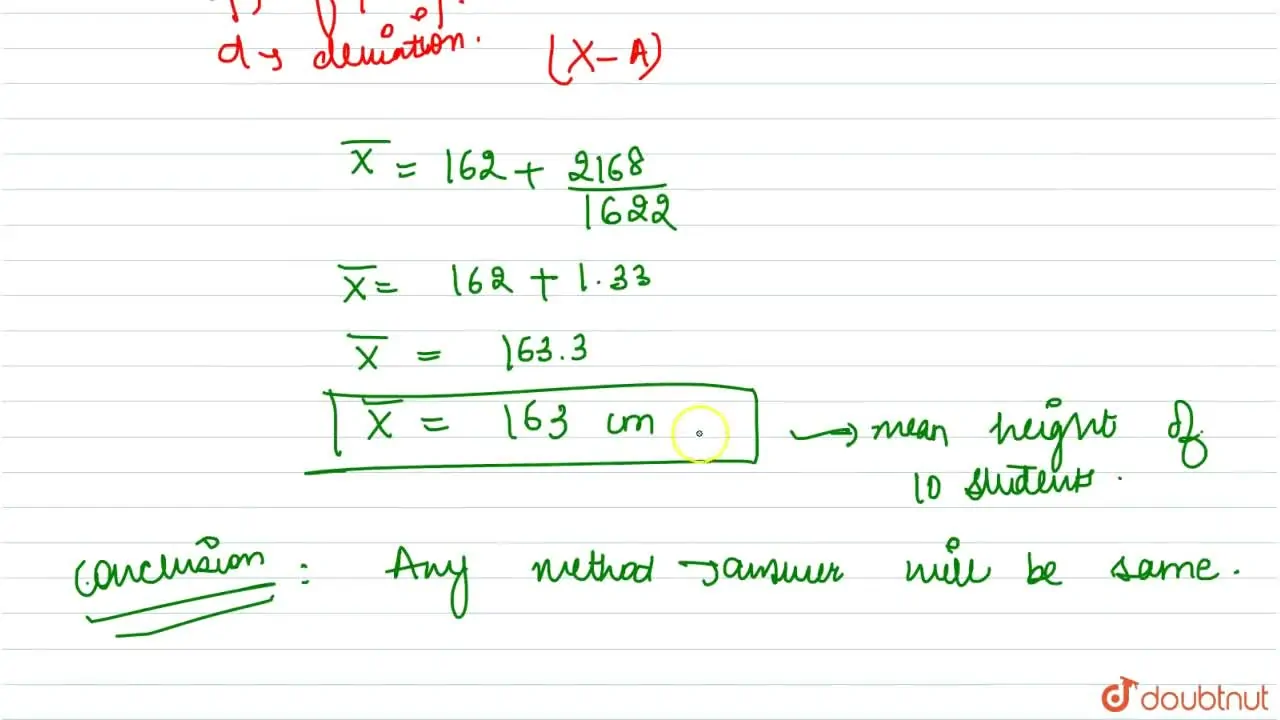 d → deviation. (X-A)
X̅ = 162 + 2168/1622
X̅ = 162 + 1.33
X̅ = 163.3
X̅ = 163 cm → mean height of
10 students.
Conclusion : Any method → answer will be same.
doubtnut